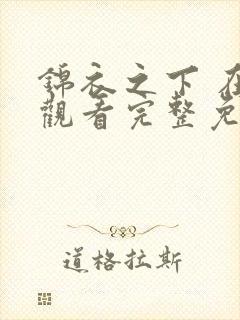 錦衣之下 在
觀看完整免
道格拉斯